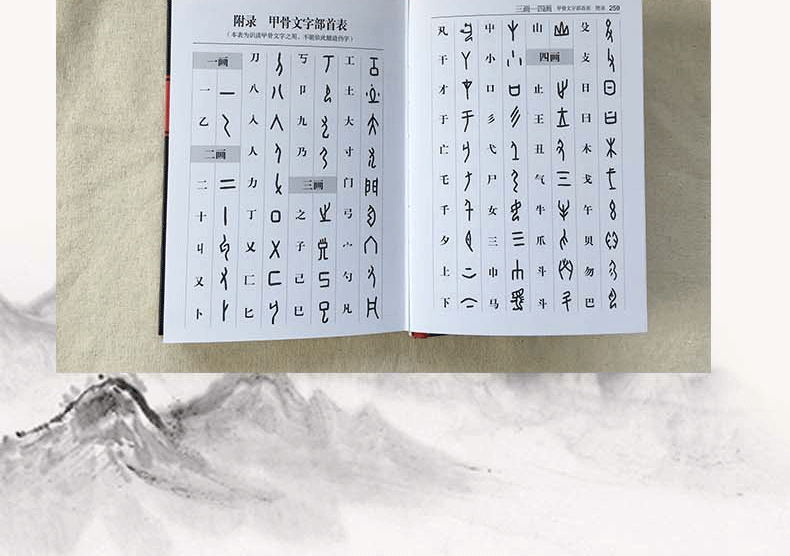 附录 甲骨文字部首表
（本表为识读甲骨文字之用，不能依此臆造伪字）
一画
一
乙
二画
二
十
丩
又
卜
刀
八
入
人
力
丁
乂
匚
匕
丂
卩
九
乃
三画
之
子
己
巳
工
土
大
寸
门
弓
宀
勺
凡
三画—四画 甲骨文字部首表 附录 259
丸
干
才
于
亡
乇
千
夕
上
下
中
小
口
彡
弋
尸
女
三
巾
马
山
四画
止
王
丑
气
牛
爪
斗
斗
殳
支
日
曰
木
戈
午
贝
勿
巴